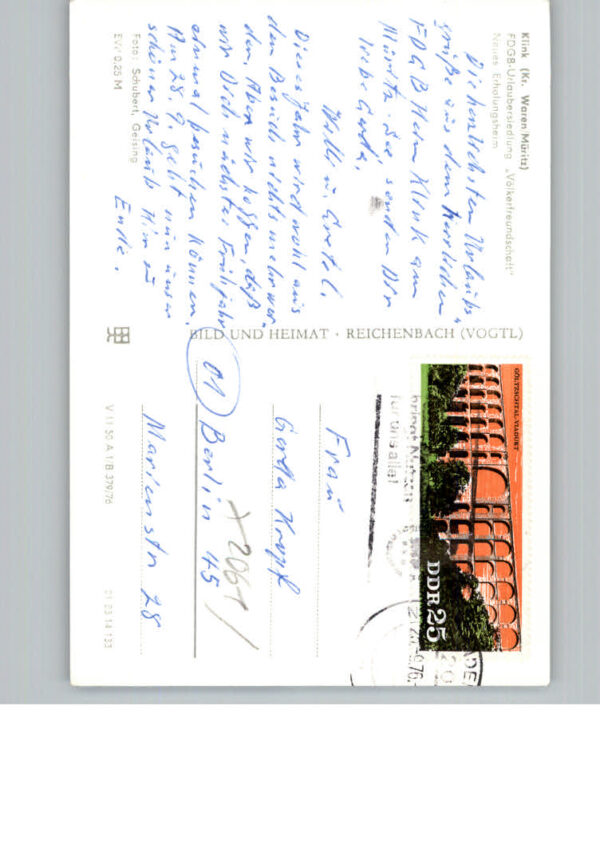 Klink (Kr. Waren Müritz)
FDGB-Urlaubersiedlung „Völkerfreundschaft"
Neues Erholungsheim
Die herzlichsten Urlaubs-
grüße aus dem herrlichen
FDGB Heim Klink am
Müritz-See senden Dir
liebe Gerda,
Willi u. Gretel.
Dieses Jahr wird wohl aus
dem Besuch nichts mehr wer-
den. Aber wir hoffen, daß
wir Dich nächstes Frühjahr
einmal besuchen können.
Am 28.9. geht nun unser
schöner Urlaub hier zu
Ende.
Foto: Schubert, Geising
EVP 0,25 M
BILD UND HEIMAT · REICHENBACH (VOGTL)
V 11 50 A 1/B 379/76
01 25 14 133
GÖLTZSCHTAL-VIADUKT
DDR 25
bringt Nutzen
für uns alle!
Frau
Gerda Kropf
01 Berlin 45
Marienstr 28